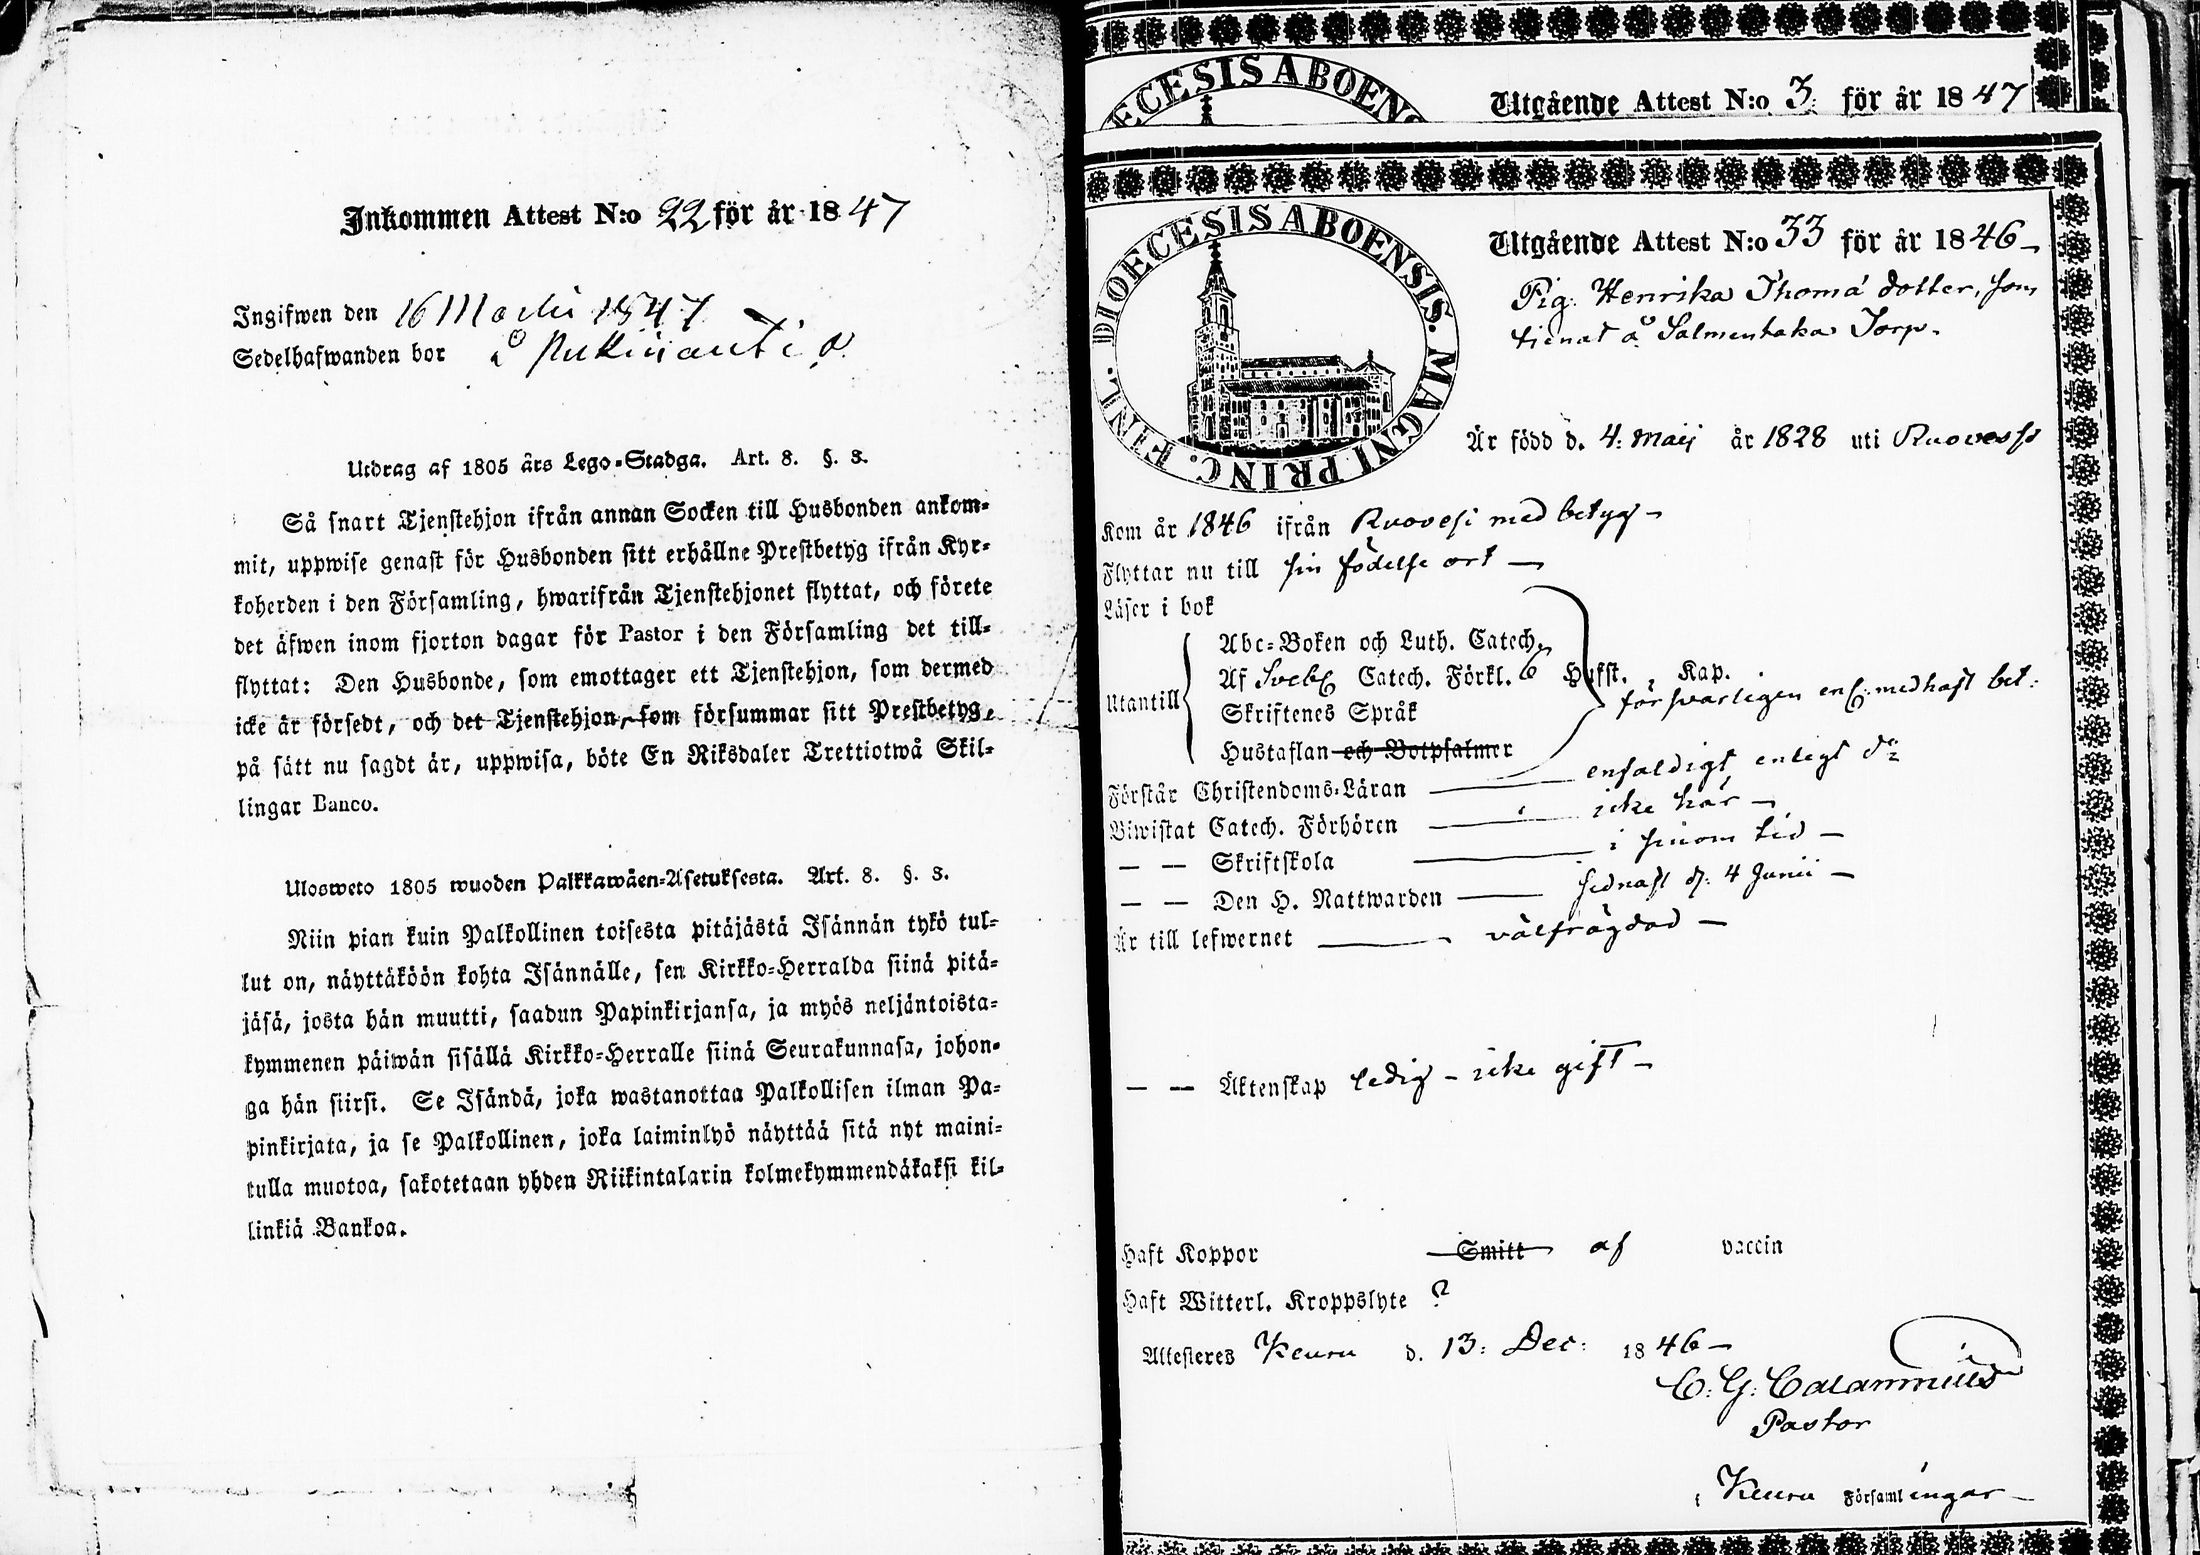 Inkommen Attest N:o 22 för år 1847
Ingifwen den 16 Martii 1847
Sedelhafwanden bor å
Utdrag af 1805 års Lego-Stadga. Art. 8. §. 3.
Så snart Tjenstehjon ifrån annan Socken till Husbonden ankom-
mit, uppwise genast för Husbonden sitt erhållne Prestbetyg ifrån Kyr-
koherden i den Församling, hwarifrån Tjenstehjonet flyttat, och förete
det äfwen inom fjorton dagar för Pastor i den Församling det till-
flyttat: Den Husbonde, som emottager ett Tjenstehjon, som dermed
icke är försedt, och det Tjenstehjon, som försummar sitt Prestbetyg,
på sätt nu sagdt är, uppwisa, böte En Riksdaler Trettiotwå Skil-
lingar Banco.
Ulosweto 1805 wuoden Palkkawäen-Asetuksesta. Art. 8. §. 3.
Niin pian kuin Palkollinen toisesta pitäjästä Isännän tykö tul-
lut on, näyttäköön kohta Isännälle, sen Kirkko-Herralda siinä pitä-
jäsä, josta hän muutti, saadun Papinkirjansa, ja myös neljäntoista-
kymmenen päiwän sisällä Kirkko-Herralle siinä Seurakunnasa, johon-
ga hän siirsi. Se Isändä, joka wastanottaa Palkollisen ilman Pa-
pinkirjata, ja se Palkollinen, joka laiminlyö näyttää sitä nyt maini-
tulla muotoa, sakotetaan yhden Riikintalarin kolmekymmendäkaksi kil-
linkiä Bankoa.
ECESIS ABOENS
Utgående Attest N:o 3 för år 1847
DIOECESIS ABOENSIS. MAGNI PRINC. FINL.
Utgående Attest N:o 33 för år 1846
Pig. Henrika Thomä dotter, som
tienat å Salmentaka Torp.
Är född d. 4: Maij år 1828 uti Ruovessi
Kom år 1846 ifrån Ruovesi med betyg
Flyttar nu till sin födelse ort
Läser i bok
Utantill
Abc-Boken och Luth. Catech.
Af Sveb. Catech. Förkl. 6 Hufst. , Kap.
Skriftenes Språk
försvarligen enl. medhaft bet:
Hustaflan och Botpsalmer
Förstår Christendoms-Läran enfaldigt enligt do
Biwistat Catech. Förhören icke här
— — Skriftskola i sinom tid
— — Den H. Nattwarden sednast d. 4 Junii
Är till lefwernet välfrägdad
— — Äktenskap ledig - icke gift
Haft Koppor Smitt af vaccin
Haft Witterl. Kroppslyte ?
Attesteres Keuru d. 13: Dec: 1846
C. G. Calamnius
Pastor
i Keuru Församlingar